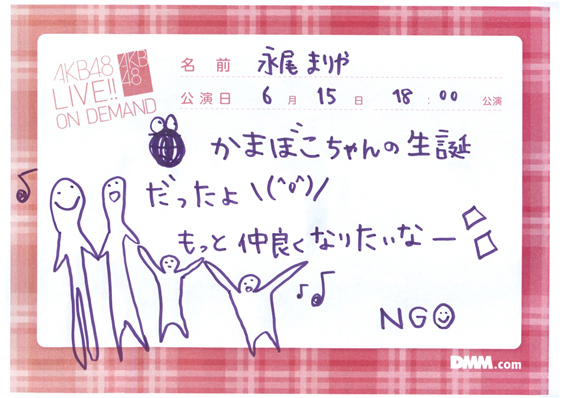 AKB48
LIVE!!
ON DEMAND
AKB
48
名前 永尾 まりや
公演日 6月 15日 18:00 公演
かまぼこちゃんの生誕
だったよ\(^o^)/
もっと仲良くなりたいなー
NGO
DMM.com